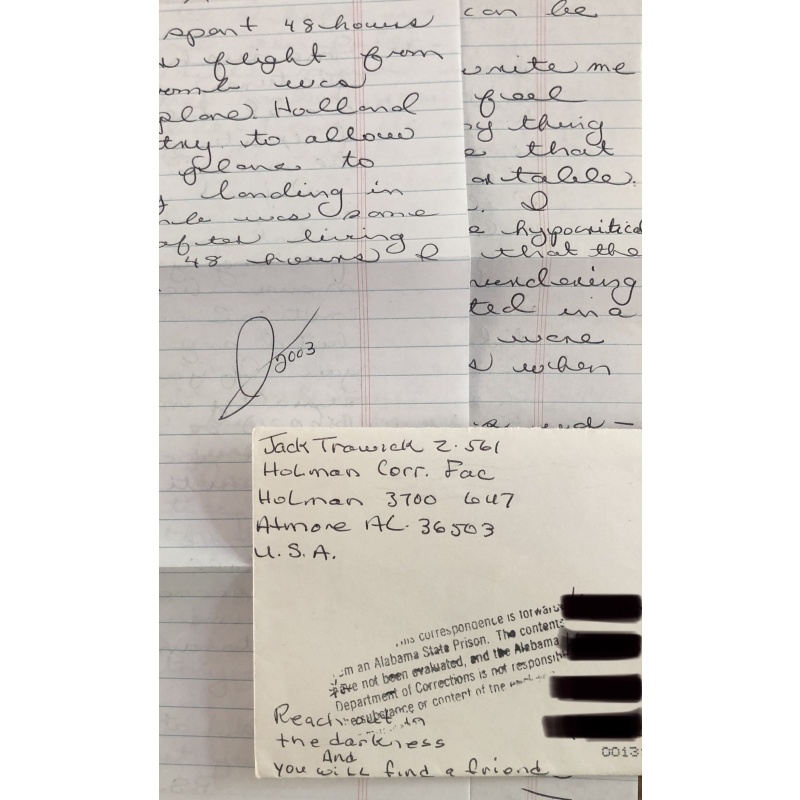 spent 48 hours
flight from
was
plane. Holland
try to allow
plane to
landing in
was some
after living
48 hours I
2003
can be
write me
feel
thing
that
table.
I
hypocritical
that the
murdering
in a
were
when
Jack Trawick Z-561
Holman Corr. Fac
Holman 3700 6U7
Atmore AL. 36503
U.S.A.
This correspondence is forwar
an Alabama State Prison. The contents
have not been evaluated, and the Alabama
Department of Corrections is not responsib
substance or content of the
Reach out in
the darkness
And
You will find a friend
0013